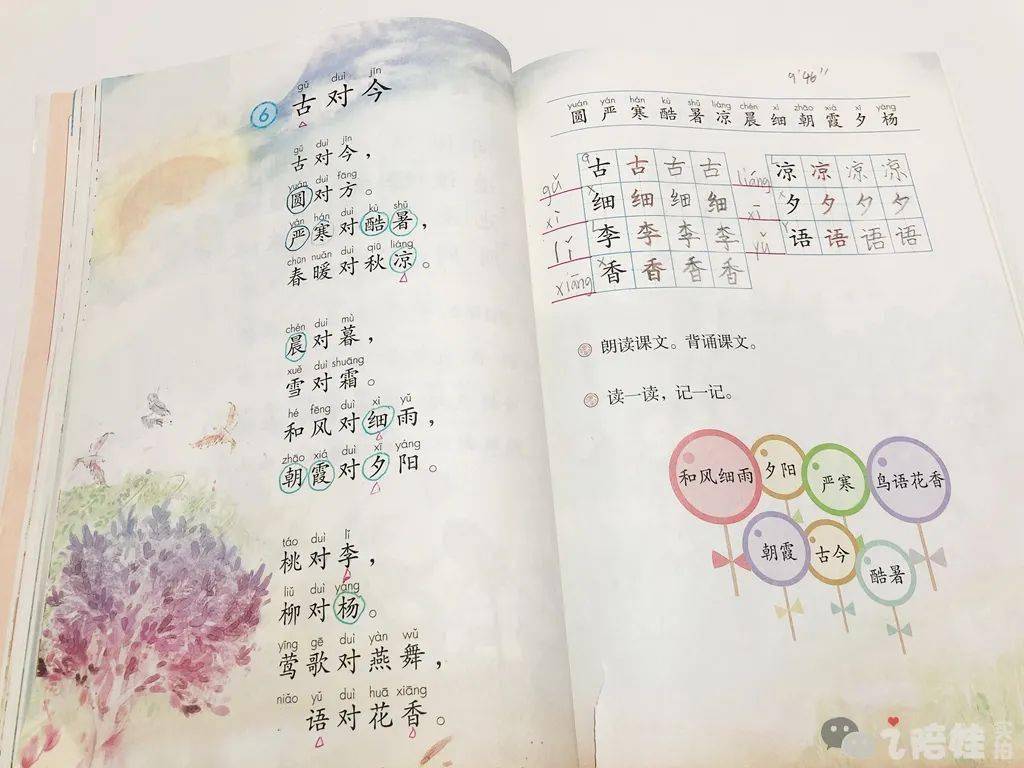 gǔ duì jīn
6 古对今
gǔ duì jīn
古对今，
yuán duì fāng
圆对方。
yán hán duì kù shǔ
严寒对酷暑，
chūn nuǎn duì qiū liáng
春暖对秋凉。
chén duì mù
晨对暮，
xuě duì shuāng
雪对霜。
hé fēng duì xì yǔ
和风对细雨，
zhāo xiá duì xī yáng
朝霞对夕阳。
táo duì lǐ
桃对李，
liǔ duì yáng
柳对杨。
yīng gē duì yàn wǔ
莺歌对燕舞，
niǎo yǔ duì huā xiāng
语对花香。
9'46''
yuán yán hán kù shǔ liáng chén xì zhāo xiá xī yáng
圆严寒酷暑凉晨细朝霞夕杨
gǔ 古古古古 liáng 凉凉凉凉
xì 细细细细 xī 夕夕夕夕
lǐ 李李李李 yǔ 语语语语
xiāng 香香香香
朗读课文。背诵课文。
读一读，记一记。
和风细雨 夕阳 严寒 鸟语花香
朝霞 古今 酷暑
陪娃